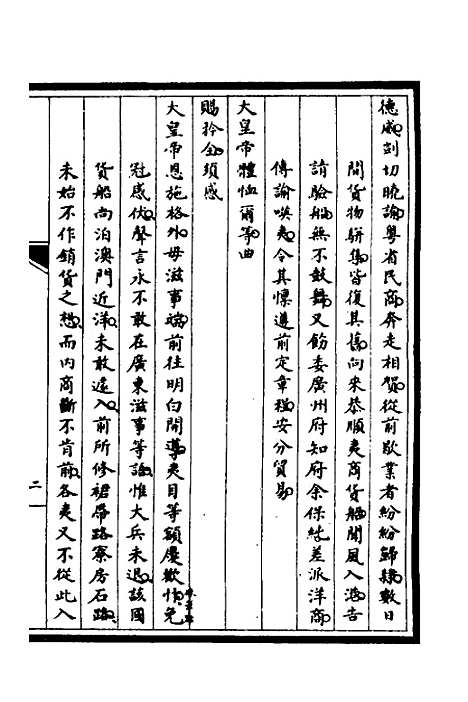 德威剴切曉諭粵省民商奔走相賀從前歇業者紛紛歸肆數日
間貨物駢集皆復其舊向來恭順夷商貨船聞風入港告
請驗船無不鼓舞又飭委廣州府知府余保純差派洋商
傳諭嘆夷令其懍遵前定章程安分貿易
大皇帝體恤爾等曲
賜矜全須感
大皇帝恩施格外毋滋事端前往明白開導夷目等額慶歡忭免
冠感伏聲言永不敢在廣東滋事等語惟大兵未退該國
貨船尚泊澳門近洋未敢遠入前所修裙帶路寮房石路
未始不作銷貨之想而內商斷不肯前各夷又不從此入
二